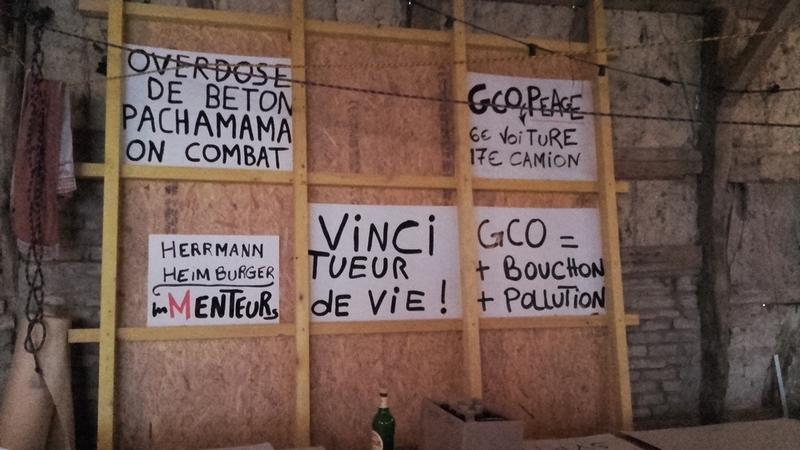 OVERDOSE
DE BETON
PACHAMAMA
ON COMBAT
GCO, PEAGE
6€ VOiTURE
17€ CAMION
HERRMANN
HEIMBURGER
MENTEURs
ViNCi
TUEUR
de ViE !
GCO =
+ BOUCHON
+ POLLUTION